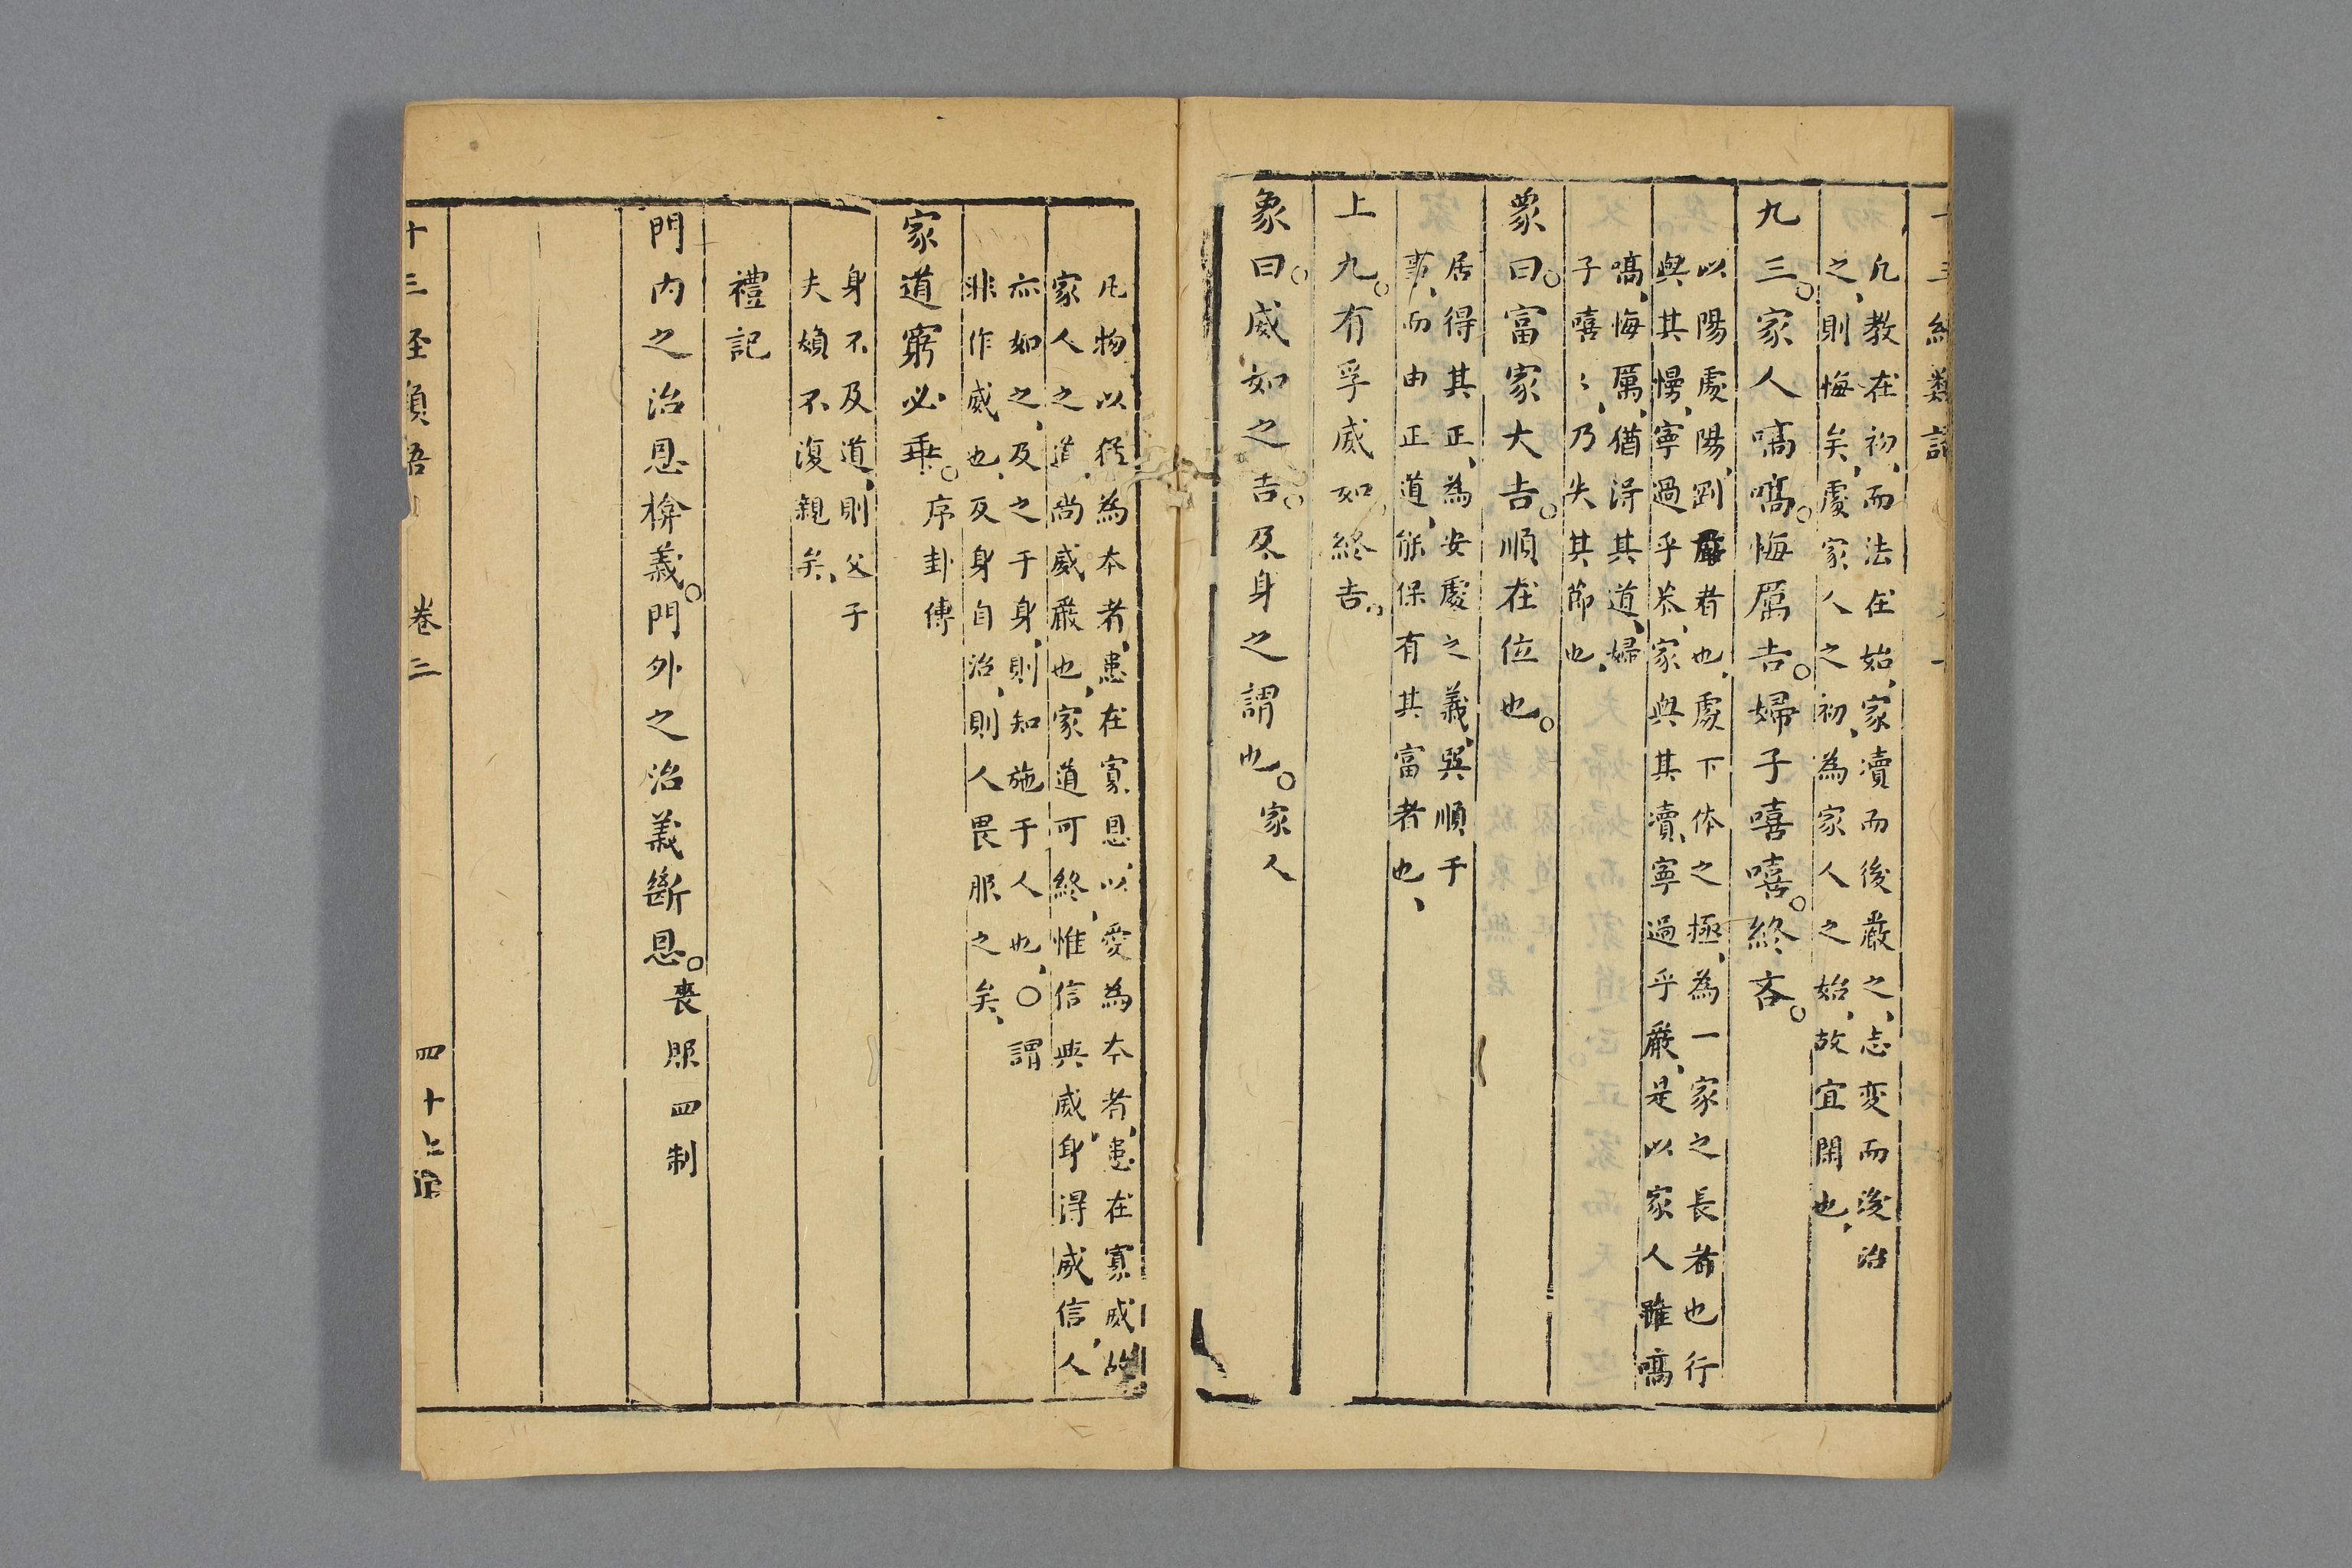 凡教在初、而法在始、家瀆而後嚴之、志変而後治
之、則悔矣、處家人之初、為家人之始、故宜閑也、
九三。家人嗃嗃。悔厲吉。婦子嘻嘻。終吝。
以陽處陽、剛嚴者也、處下体之極、為一家之長者也行
與其慢、寧過乎恭、家與其瀆、寧過乎嚴、是以家人雖嗃
嗃、悔厲、猶淂其道、婦
子嘻〻、乃失其節也、
象曰。富家大吉。順在位也。
居得其正、為安處之義、巽順于
事、而由正道、能保有其富者也、
上九。有孚威如。終吉。
象曰。威如之吉。反身之謂也。家人
凡物以猛為本者、患在寡恩、以愛為本者、患在寡威、故
家人之道、尚威嚴也、家道可終、惟信與威、身淂威信、人
亦如之、及之于身、則知施于人也、〇謂
非作威也、反身自治、則人畏服之矣、
家道窮必乖。序卦傳
身不及道、則父子
夫婦不復親矣、
禮記
門内之治恩揜義。門外之治義斷恩。喪服四制
卷三
四十七